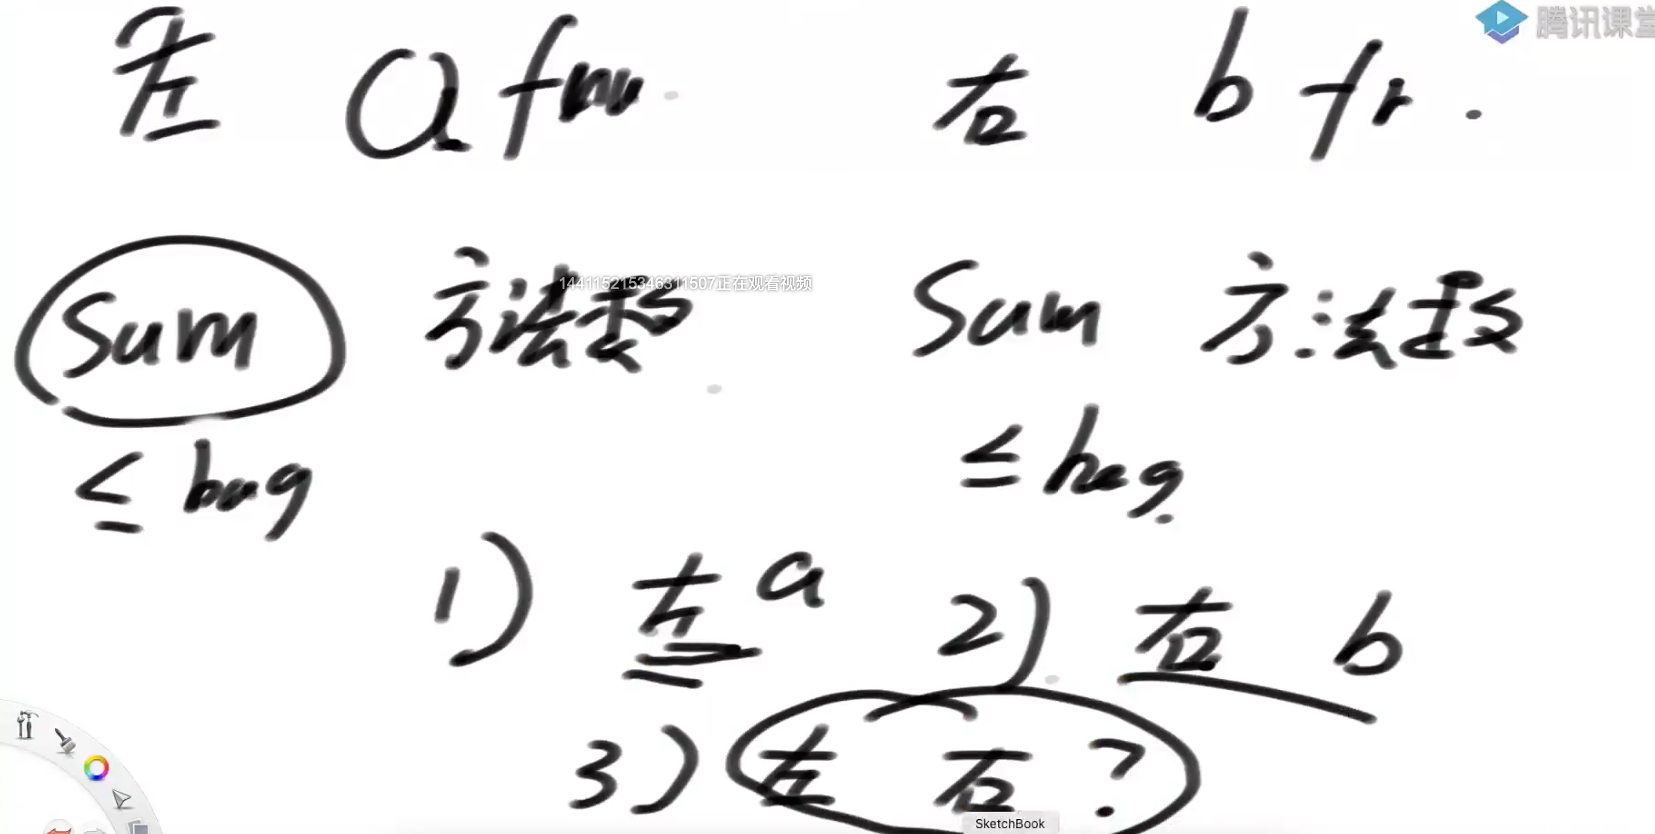 腾讯课堂
左 a fr 右 b fr.
Sum 方法数 Sum 方法数
1441152153463 11507正在观看视频
≤ bag ≤ bag
1) 左 a 2) 右 b
3) 左 右 ?
SketchBook